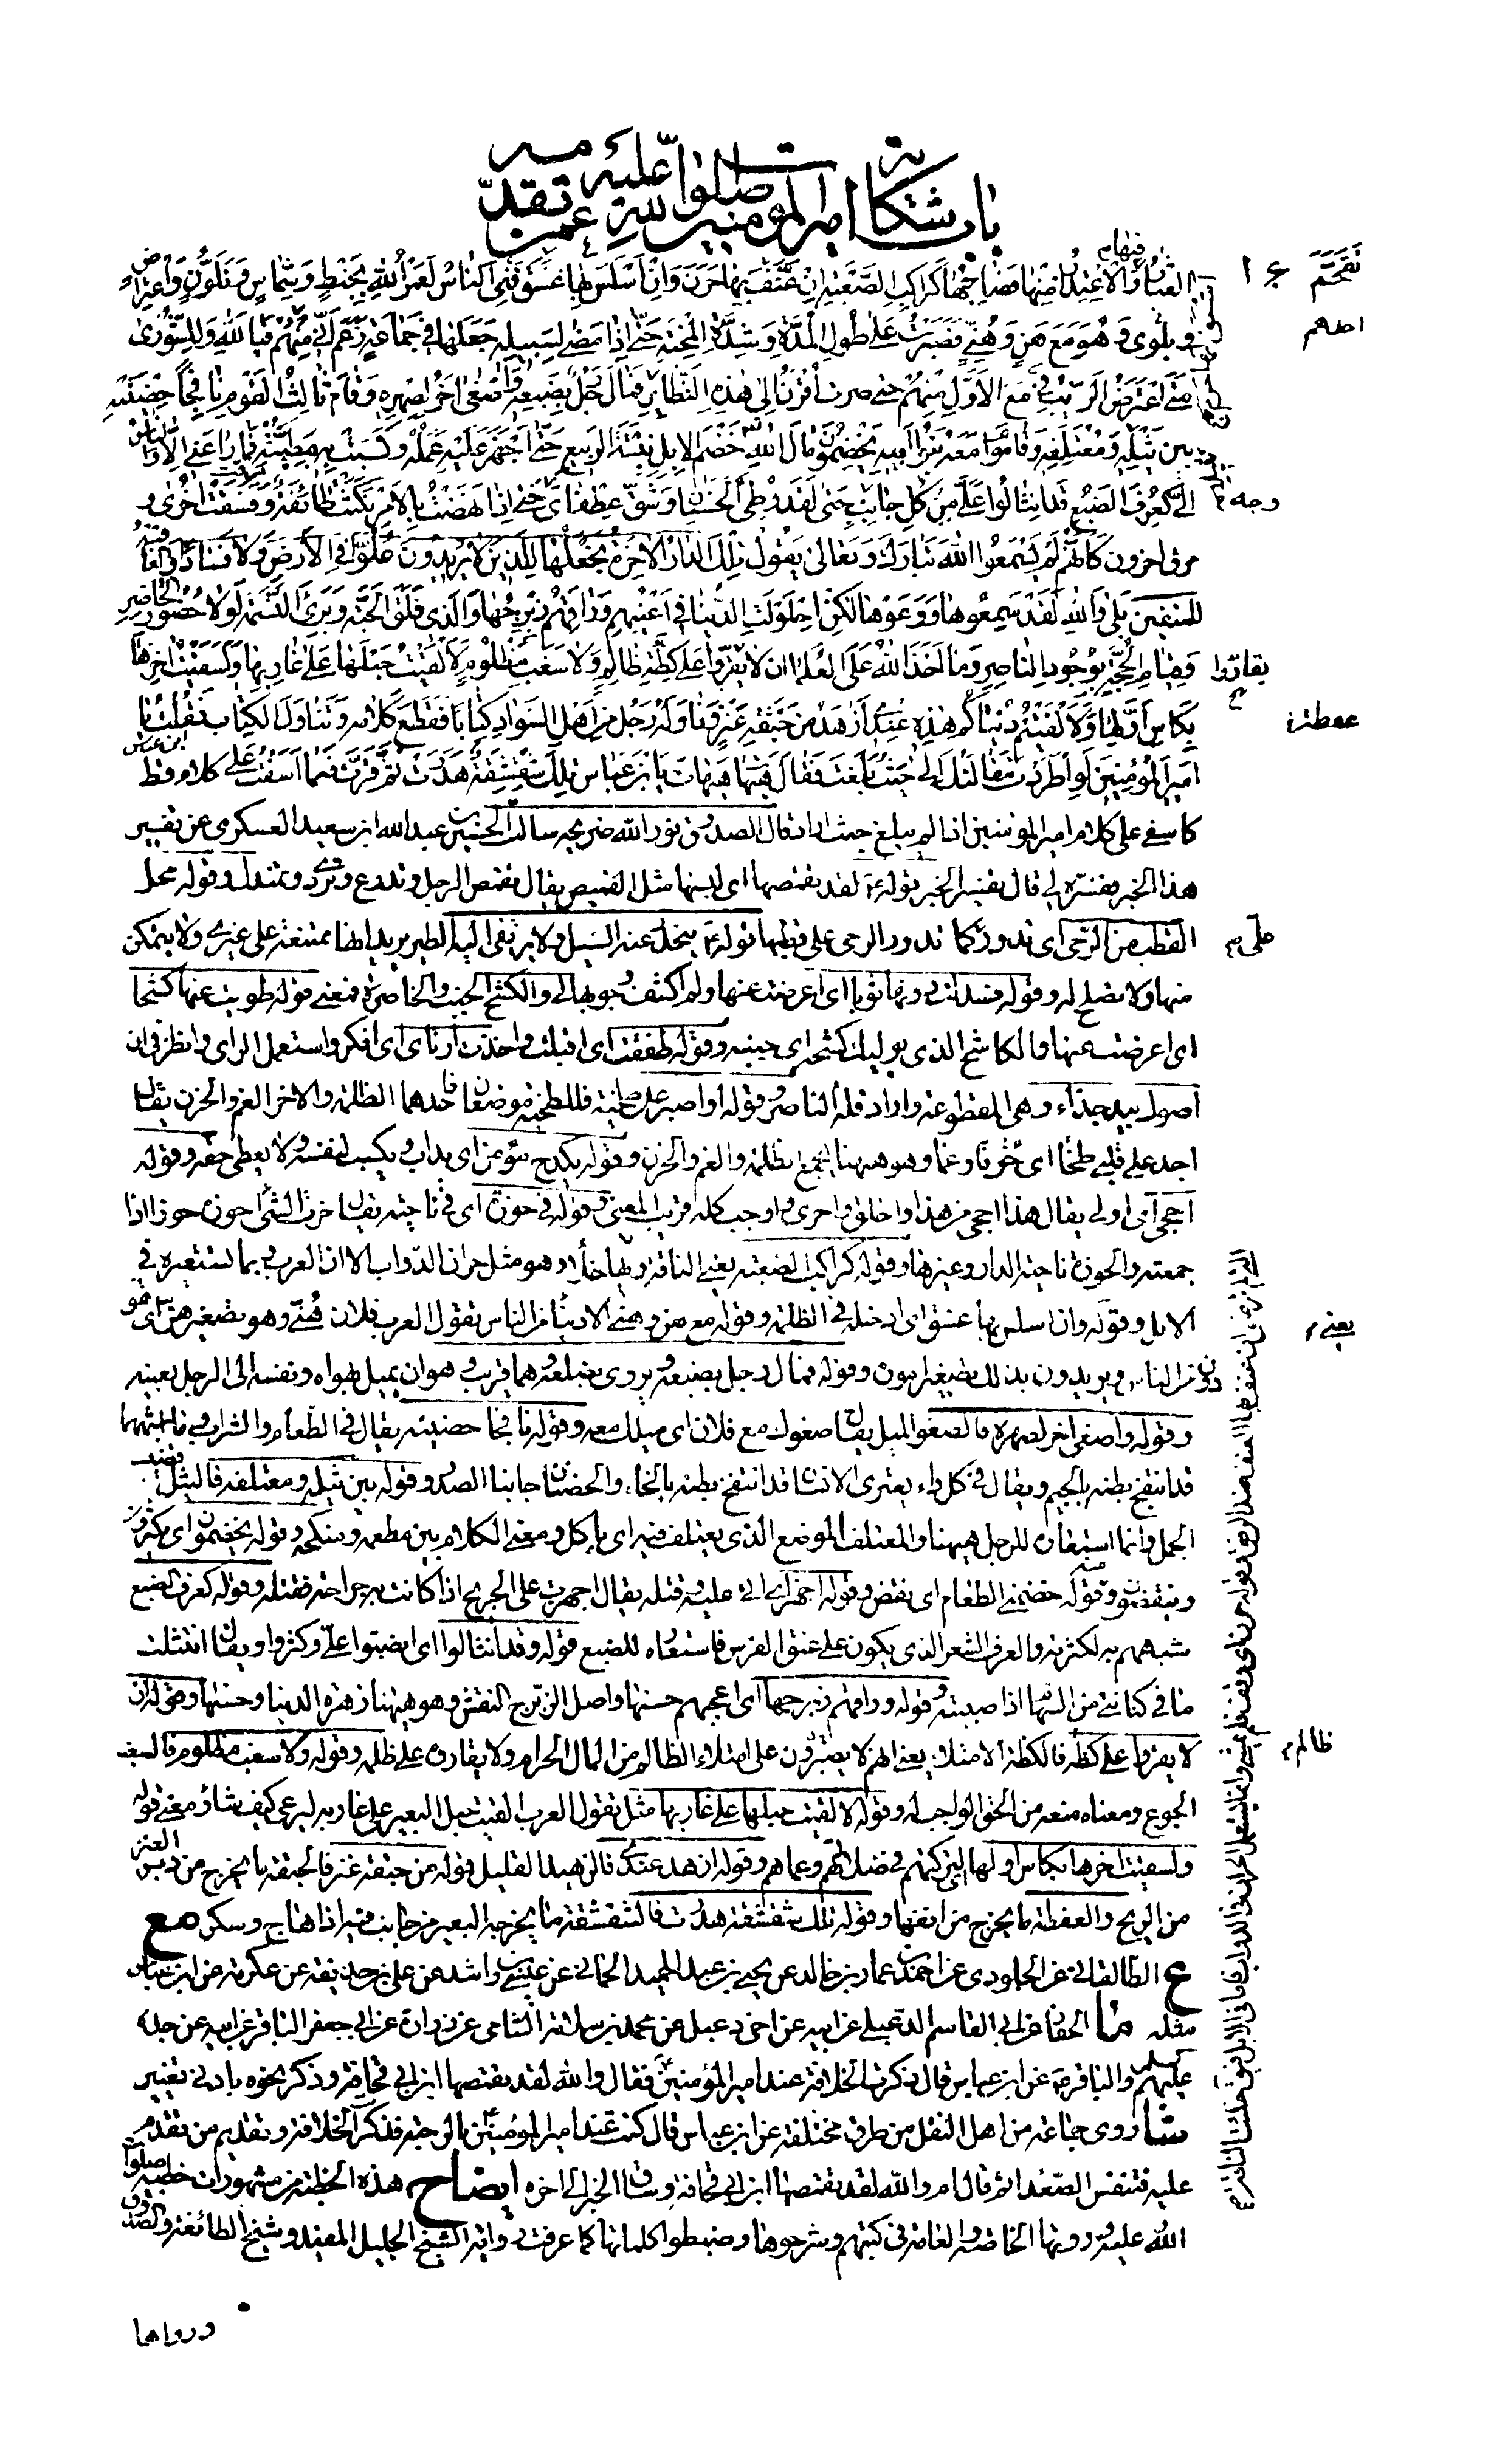 باب شكاية امير المؤمنين صلوات الله عليه عمن تقدمه
العثار والاعتذار منها فصاحبها كراكب الصعبة ان عنف بها حرن وان اسلس بها غسق فمنى الناس لعمر الله بخبط وشماس وتلون واعتراض
وبلوى وهو مع هن وهني فصبرت على طول المدة وشدة المحنة حتى اذا مضى لسبيله جعلها في جماعة زعم اني منهم فيا لله وللشورى
متى اعترض الريب في مع الاول منهم حتى صرت اقرن الى هذه النظاير فمال رجل بضبعه واصغى اخر لصهره وقام ثالث القوم نافجا حضنيه
بين نثيله ومعتلفه وقاموا معه بنو ابيه يخضمون مال الله خضم الابل نبتة الربيع حتى اجهز عليه عمله وكسبت به مطيته فما راعني الا والناس
الي كعرف الضبع قد انثالوا علي من كل جانب حتى لقد وطئ الحسنان وشق عطفاي حتى اذا نهضت بالامر نكثت طائفة وفسقت اخرى و
مرق اخرون كانهم لم يسمعوا الله تبارك وتعالى يقول تلك الدار الاخرة نجعلها للذين لا يريدون علوا في الارض ولا فسادا والعاقبة
للمتقين بلى والله لقد سمعوها ووعوها لكن احلولت الدنيا في اعينهم وراقهم زبرجها والذي فلق الحبة وبرئ النسمة لولا حضور الحاضر
وقيام الحجة بوجود الناصر وما اخذ الله على العلماء ان لا يقروا على كظة ظالم ولا سغب مظلوم لالقيت حبلها على غاربها ولسقيت اخرها
بكاس اولها ولالفيتم دنياكم هذه عندي ازهد من حبقة عنز وناوله رجل من اهل السواد كتابا فقطع كلامه وتناول الكتاب فقلت يا
امير المؤمنين لو اطردت مقالتك الى حيث بلغت فقال هيهات هيهات يا بن عباس تلك شقشقة هدرت ثم قرت فما اسفت على كلام قط
كاسفي على كلام امير المؤمنين اذ لم يبلغ حيث اراد قال الصدوق نور الله ضريحه سالت الحسين بن عبد الله ابن سعيد العسكري عن تفسير
هذا الخبر ففسره لي قال تفسير الخبر قوله ع لقد تقمصها اي لبسها مثل القميص يقال تقمص الرجل وتدرع وتردى وتمندل وقوله محل
القطب من الرحى اي تدور كما تدور الرحى على قطبها قوله ع ينحدر عنه السيل ولا يرتقي اليه الطير يريد انها ممتنعة على غيري ولا يتمكن
منها ولا يصلح له وقوله فسدلت دونها ثوبا اي اعرضت عنها ولم اكشف وجوبها لي والكشح الجنب والخاصرة فمعنى قوله طويت عنها كشحا
اي اعرضت عنها والكاشح الذي يوليك كشحه اي جنبه وقوله طفقت اي اقبلت واخذت ارتاي اي افكر واستعمل الراي وانظر في ان
اصول بيد جذاء وهي المقطوعة واراد قلة الناصر وقوله او اصبر على طخية فللطخية موضعان فاحدهما الظلمة والاخر الغم والحزن يقال
اجد على قلبي طخا اي حزنا وغما وهو ههنا يجمع الظلمة والغم والحزن وقوله يكدح مؤمن اي يداب ويكسب لنفسه ولا يعطى حقه وقوله
احجى اي اولى يقال هذا احجى من هذا واخلق واحرى واوجب كله قريب المعنى وقوله في حوزة اي في ناحية يقال حزت الشئ احوزه حوزا اذا
جمعته والحوزة ناحية الدار وغيرها وقوله كراكب الصعبة يعني الناقة وهو مثل حران الدواب الا ان العرب ربما تستعيره في
الابل وقوله وان اسلس بها غسق اي ادخله في الظلمة وقوله مع هن وهني الادنياء من الناس تقول العرب فلان هني وهو تصغير هن اي هو
دون من الناس ويريدون بذلك تصغير امره وقوله فمال رجل بضبعه ويروى بضلعه وهما قريب وهو ان يميل بهواه ونفسه الى الرجل بعينه
وقوله واصغى اخر لصهره فالصغو الميل يقال صغوك مع فلان اي ميلك معه وقوله نافجا حضنيه يقال في الطعام والشراب وما اشبههما
قد انتفج بطنه بالجيم ويقال في كل داء يعتري الانسان قد انتفخ بطنه بالخاء والحضنان جانبا الصدر وقوله بين نثيله ومعتلفه فالنثيل قضيب
الجمل وانما استعاره للرجل ههنا والمعتلف الموضع الذي يعتلف فيه اي ياكل ومعنى الكلام بين مطعمه ومنكحه وقوله يخضمون اي يكثرون
وينقضون وقوله خضمني الطعام اي نقض وقوله اجهز اي اتى عليه وقتله يقال اجهزت على الجريح اذا كانت به جراحة فقتلته وقوله كعرف الضبع
شبههم به لكثرته والعرف الشعر الذي يكون على عنق الفرس فاستعاره للضبع قوله وقد انثالوا اي انصبوا علي وكثروا ويقال انتثلت
ما في كنانتي من السهام اذا صببته وقوله وراقهم زبرجها اي اعجبهم حسنها واصل الزبرج النقش وهو ههنا زهرة الدنيا وحسنها وقوله ان
لا يقروا على كظة فالكظة الامتلاء يعني انهم لا يصبرون على امتلاء الظالم من المال الحرام ولا يقاروه على ظلمه وقوله ولا سغب مظلوم فالسغب
الجوع ومعناه منعه من الحق الواجب له وقوله لالقيت حبلها على غاربها مثل تقول العرب القيت حبل البعير على غاربه ليرعى كيف شاء ومعنى قوله
ولسقيت اخرها بكاس اولها اي لتركتهم في ضلالتهم وعماهم وقوله ازهد عندي فالزهيد القليل قوله من حبقة عنز فالحبقة ما يخرج من دبر العنز
من الريح والعفطة ما يخرج من انفها وقوله تلك شقشقة هدرت فالشقشقة ما يخرجه البعير من جانب فيه اذا هاج وسكر مع
ع الطالقاني عن الجلودي عن احمد بن عمار بن خالد عن يحيى بن عبد الحميد الحماني عن عيسى بن راشد عن علي بن حذيفة عن عكرمة عن ابن عباس
مثله ما الحفار عن ابي القاسم الدعبلي عن ابيه عن اخي دعبل عن محمد بن سلامة الشامي عن زرارة عن ابي جعفر الباقر عن ابيه عن جده
عليهم السلام والباقر ع عن ابن عباس قال ذكرت الخلافة عند امير المؤمنين ع فقال والله لقد تقمصها ابن ابي قحافة وذكر نحوه بادنى تغيير
شا روى جماعة من اهل النقل من طرق مختلفة عن ابن عباس قال كنت عند امير المؤمنين ع بالرحبة فذكرت الخلافة وتقدم من تقدم
عليه فتنفس الصعداء ثم قال ام والله لقد تقمصها ابن ابي قحافة وساق الخبر الى اخره ايضاح هذه الخطبة من مشهورات خطبه صلوات
الله عليه روتها الخاصة والعامة في كتبهم وشرحوها وضبطوا كلماتها كما عرفت رواية الشيخ الجليل المفيد وشيخ الطائفة والصدوق
ورواها